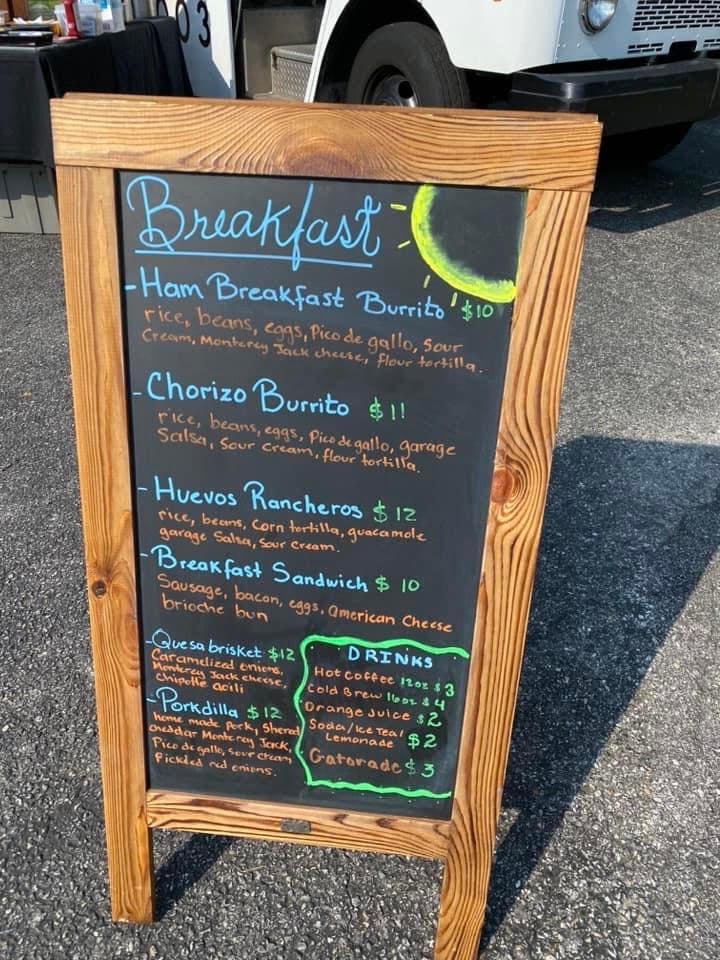 03
Breakfast
- Ham Breakfast Burrito $10
rice, beans, eggs, Pico de gallo, sour
Cream, Monterey Jack cheese, flour tortilla.
- Chorizo Burrito $11
rice, beans, eggs, Pico de gallo, garage
Salsa, Sour cream, flour tortilla.
- Huevos Rancheros $12
rice, beans, Corn tortilla, guacamole
garage Salsa, Sour cream.
- Breakfast Sandwich $10
Sausage, bacon, eggs, American Cheese
brioche bun
- Quesabrisket $12
Caramelized onions,
Monterey Jack cheese,
Chipotle aoili
- Porkdilla $12
home made pork, Shered
cheddar Monterey Jack,
Pico de gallo, sour cream
Pickled red onions.
DRINKS
Hot Coffee 12oz $3
Cold Brew 16oz $4
Orange Juice $2
Soda/Ice Tea/
Lemonade $2
Gatorade $3